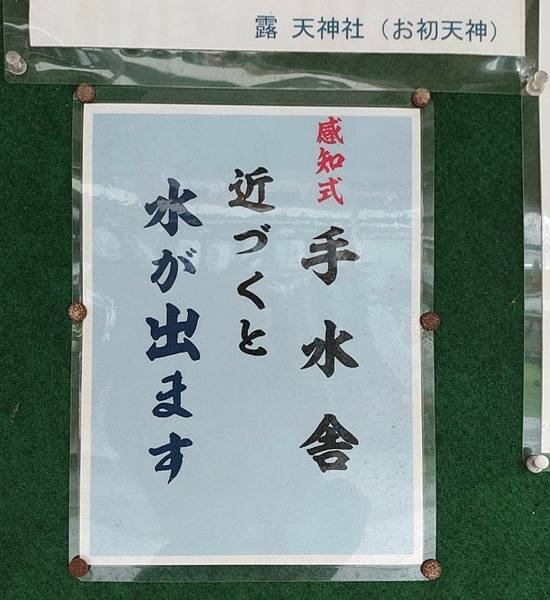 露 天神社（お初天神）
感知式 手水舎
近づくと
水が出ます